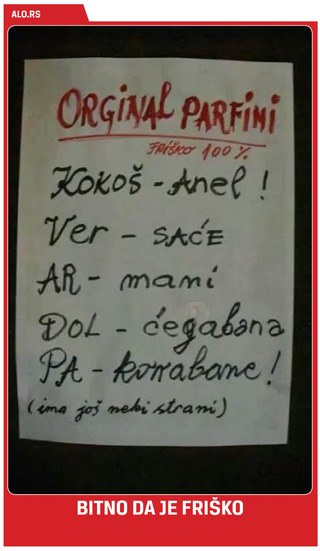 ALO.RS
ORGINAL PARFINI
FRIŠKO 100%
Kokoš - Anel!
Ver - SAĆE
AR - mani
DOL - ćegabana
PA - korabane!
(ima još neki strani)
BITNO DA JE FRIŠKO